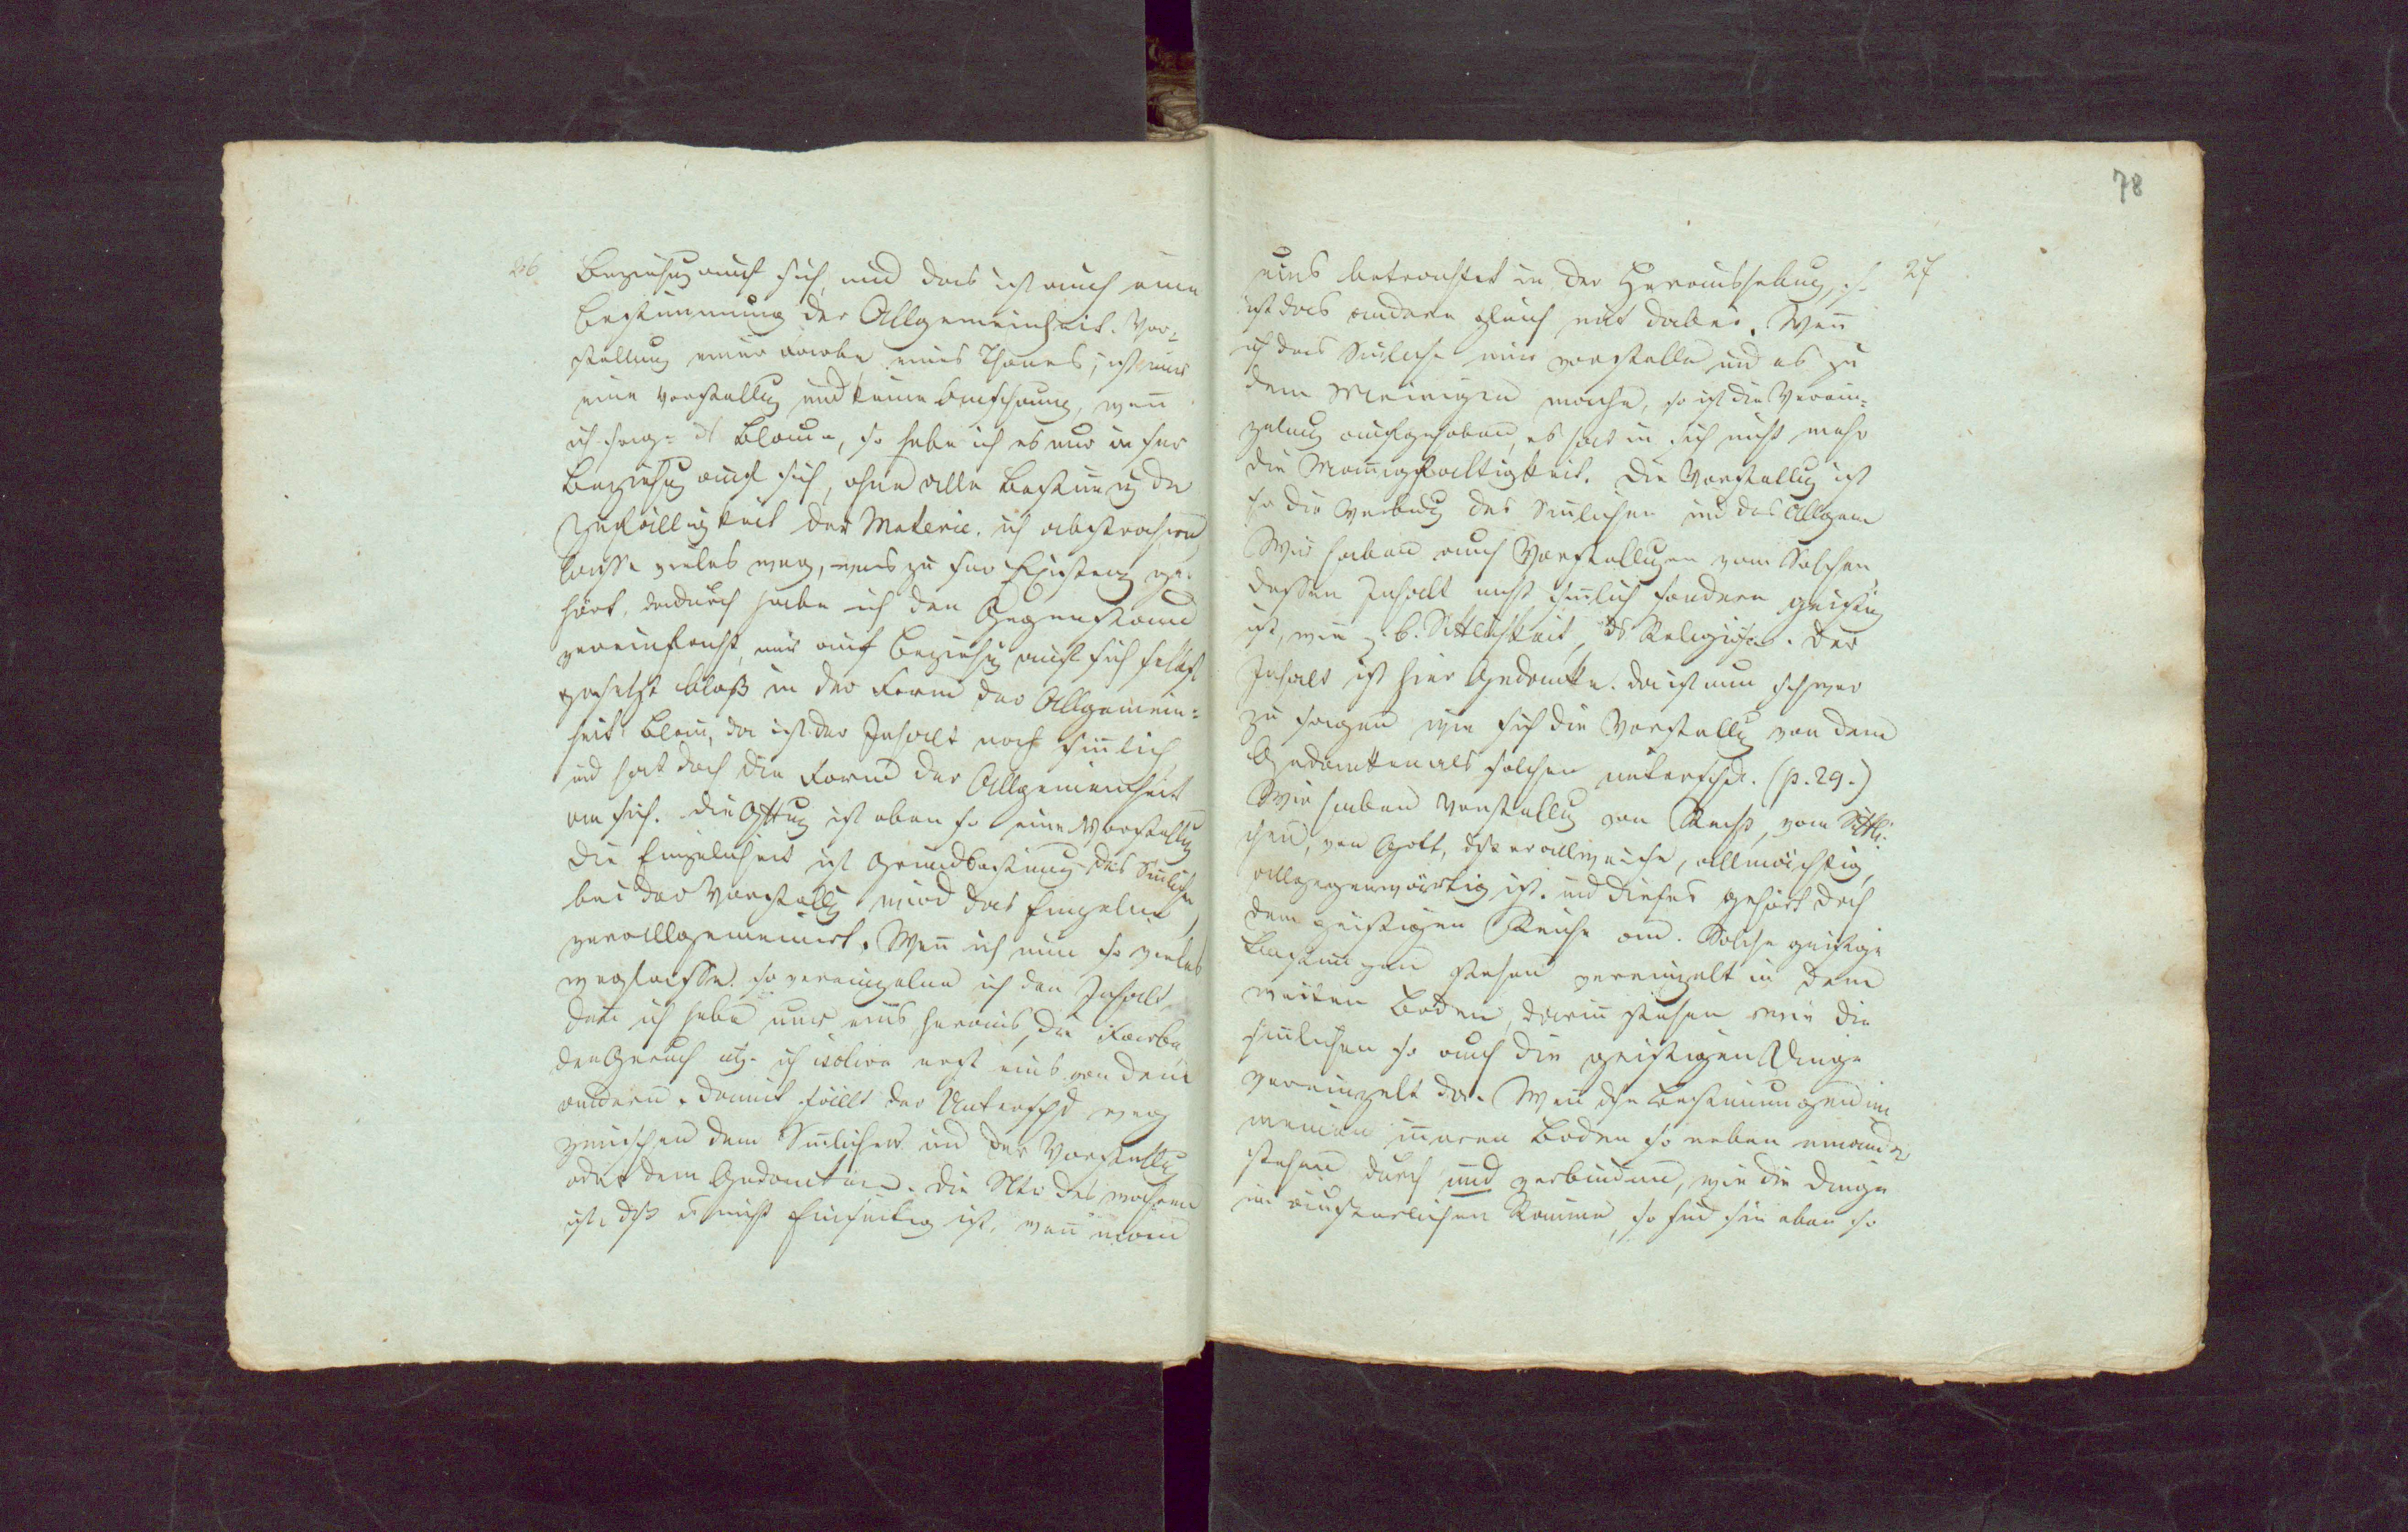 26
Beziehug auf sich, und das ist auch eine
Bestimmung der Allgemeinheit. Vor-
stellung einer Farbe eines Thones, ist nur
eine Vorstellug und keine Anschauung, wen̅
ich sage ds Blaue, so habe ich es nur in sr
Beziehug auf sich, ohne alle Bestim̅ug der
Zufälligkeit der Materie. ich abstrahire,
lasse vieles weg, was zu sr Existenz ge-
hört. dadurch habe ich den Gegenstand
vereinfacht, nur auf Beziehug auf sich selbst
gesetzt bloß in der Form der Allgemein-
heit. Blau, da ist der Inhalt noch sin̅lich,
und hat doch die Form der Allgemeinheit
an sich. die Gttug ist eben so eine Vorstellug
die Einzelnheit ist Grundbestimug des Sin̅lichen
bei der Vorstellug wird das Einzelne
verallgemeinert. Wen̅ ich nun so vieles
weglasse. so vereinzelne ich den Inhalt
den̅ ich hebe nur eins heraus, die Farbe,
den Geruch etz. ich isolire erst eins von dem
andern. damit fällt der Unterschd weg
zwischen dem Sin̅lichen und der Vorstellug
oder dem Gedanken. die Ntr des wahren
ist, dß es nicht Einseitig ist, wen̅ man
78
27
eins betrachtet in der Heraushebug, so
ist das andere gleich mit dabei. Wen̅
ich das Sin̅liche mir vorstelle und es zu
dem Meinigen mache, so ist die Verein-
zelung aufgehoben, es hat in sich nicht mehr
die Man̅igfaltigkeit. Die Vorstellug ist
so die Verbdug des Sin̅lichen und des Allgem
Wir haben auch Vorstellugen vom Solchen
dessen Inhalt nicht sin̅lich sondern geistig
ist, wie z. B. Sittlichkeit, ds Religiöse. der
Inhalt ist hier Gedanke. da ist nun schwer
zu sagen wie sich die Vorstellug von dem
Gedanken als solchen unterschd. (p. 29.)
Wir haben Vorstellug von Recht, vom Sittli-
chen, von Gott, dß er allweise, allmächtig,
allgegenwärtig ist. und dieses gehört doch
dem geistigen Reiche an. Solche geistige
Bestim̅ugen stehen vereinzelt in dem
weiten Boden, darin̅ stehen wie die
sin̅lichen so auch die geistigen Dinge
vereinzelt da. Wen̅ die Bestimmungen in
meinen in̅eren Boden so neben einander
stehen durch und verbunden, wie die Dinge
im äusserlichen Raume, so sind sie eben so